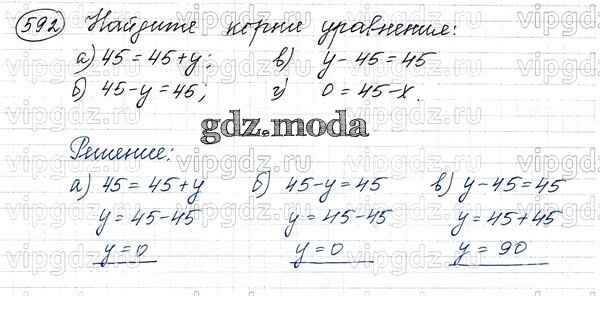 592 Найдите корни уравнения:
а) 45 = 45 + y; в) y - 45 = 45
б) 45 - y = 45; г) 0 = 45 - x.
gdz.moda
Решение:
а) 45 = 45 + y б) 45 - y = 45 в) y - 45 = 45
y = 45 - 45 y = 45 - 45 y = 45 + 45
y = 0 y = 0 y = 90